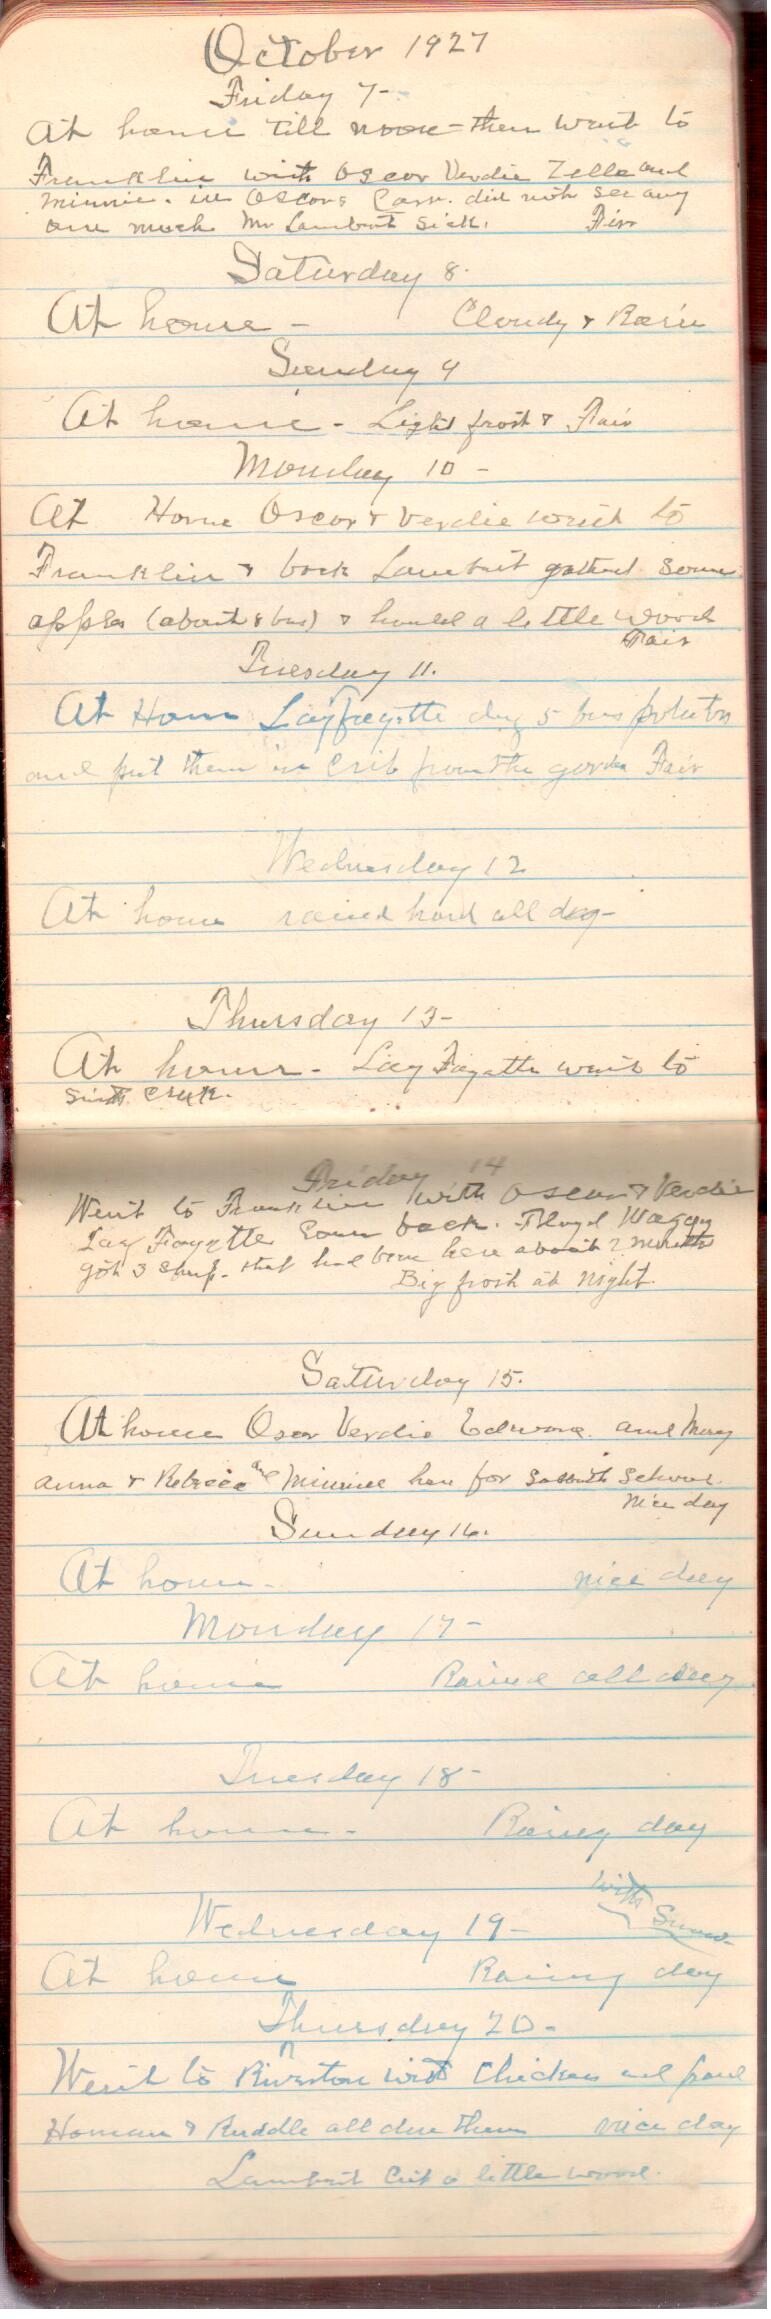 October 1927
Friday 7-
At home till noon - then went to
Franklin with Oscar Verdie Zella and
Minnie. in Oscars Carr. did not see any
one much Mr Lambert sick. Fair
Saturday 8.
At home - Cloudy & Rain
Sunday 9
At home - Light frost & Fair
Monday 10 -
At Home Oscar & Verdie went to
Franklin & back Lambert gathed some
apples (about 8 bus) & hauled a little wood
Fair
Tuesday 11.
At Home Layfayette dug 5 bus potatos
and put them in Crib from the garden Fair
Wednesday 12
At home rained hard all day-
Thursday 13-
At home - Lay Fayette went to
Smith Creek.
Friday 14
Went to Franklin with Oscar & Verdie
Lay Fayette Come back. Floyd Waggy
got 3 sheep. that had been here about 2 months
Big frost at night.
Saturday 15.
At home Oscar Verdie and Mary
Anna & Rebecca and Minnie here for Sabbath School.
Nice day
Sunday 16.
At home - nice day
Monday 17-
At home Rained all day
Tuesday 18-
At home - Rainy day
with Snow-
Wednesday 19-
At home Rainy day
Thursday 20-
Went to Riverton with Chickens and paid
Homan & Ruddle all due them nice day
Lambert Cut a little wood.